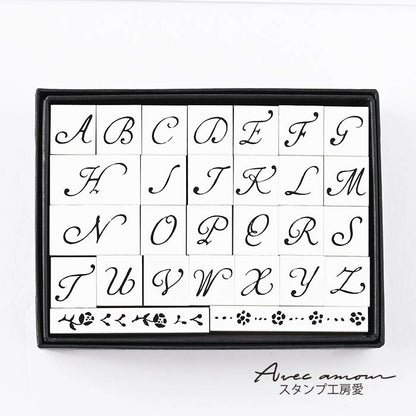 A B C D E F G
H I J K L M
N O P Q R S
T U V W X Y Z
Avec amour
スタンプ工房愛